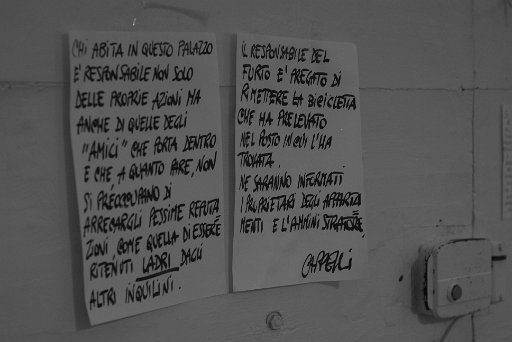 CHI ABITA IN QUESTO PALAZZO
E' RESPONSABILE NON SOLO
DELLE PROPRIE AZIONI MA
ANCHE DI QUELLE DEGLI
"AMICI" CHE PORTA DENTRO
E CHE, A QUANTO PARE, NON
SI PREOCCUPANO DI
ARRECARGLI PESSIME REPUTA
ZIONI, COME QUELLA DI ESSERE
RITENUTI LADRI DAGLI
ALTRI INQUILINI.
IL RESPONSABILE DEL
FURTO E' PREGATO DI
RIMETTERE LA BICICLETTA
CHE HA PRELEVATO
NEL POSTO IN CUI L'HA
TROVATA.
NE SARANNO INFORMATI
I PROPRIETARI DEGLI APPARTA
MENTI E L'AMMINISTRATORE.
CAPPELLI